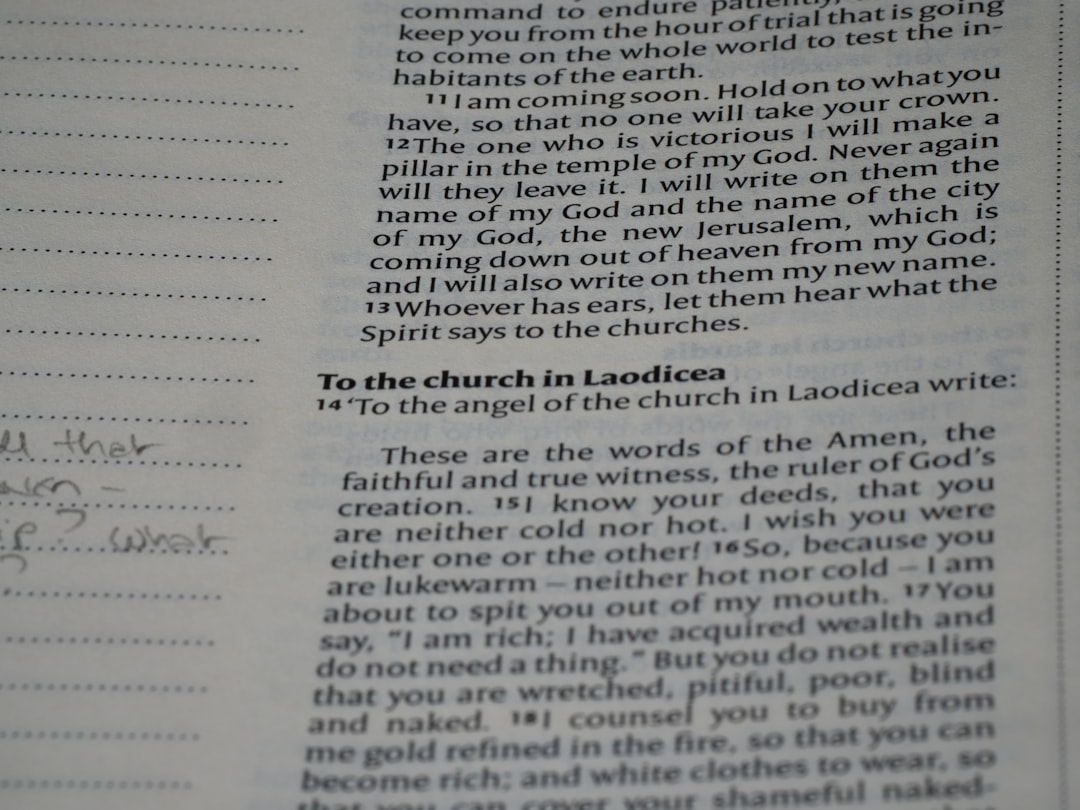 command to endure patiently,
keep you from the hour of trial that is going
to come on the whole world to test the in-
habitants of the earth.
11 I am coming soon. Hold on to what you
have, so that no one will take your crown.
12 The one who is victorious I will make a
pillar in the temple of my God. Never again
will they leave it. I will write on them the
name of my God and the name of the city
of my God, the new Jerusalem, which is
coming down out of heaven from my God;
and I will also write on them my new name.
13 Whoever has ears, let them hear what the
Spirit says to the churches.
To the church in Laodicea
14 ‘To the angel of the church in Laodicea write:
These are the words of the Amen, the
faithful and true witness, the ruler of God’s
creation. 15 I know your deeds, that you
are neither cold nor hot. I wish you were
either one or the other! 16 So, because you
are lukewarm – neither hot nor cold – I am
about to spit you out of my mouth. 17 You
say, “I am rich; I have acquired wealth and
do not need a thing.” But you do not realise
that you are wretched, pitiful, poor, blind
and naked. 18 I counsel you to buy from
me gold refined in the fire, so that you can
become rich; and white clothes to wear, so
that you can cover your shameful naked-
that
what